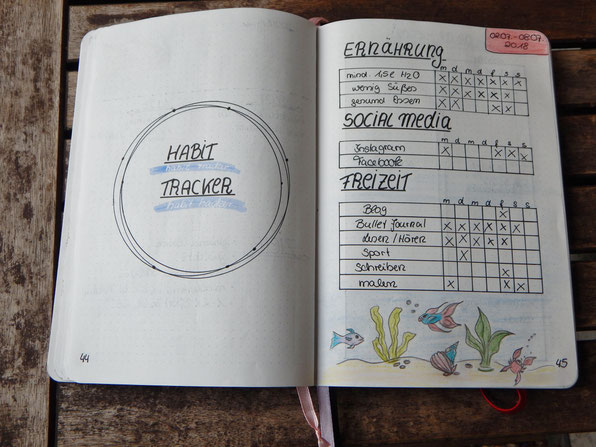 HABIT
habit tracker
TRACKER
habit tracker
44
02.07.-08.07.
2018
ERNÄHRUNG
m d m d f s s
mind 1,5l H2O x x x x x x x
wenig Süßes x x x x x x
gesund Essen x x x x
SOCIAL MEDIA
m d m d f s s
Instagram x x x x
Facebook
FREIZEIT
m d m d f s s
Blog x
Bullet journal x x x x x x
Lesen/Hören x x x x x
Sport x
Schreiben x
malen x x x x
45